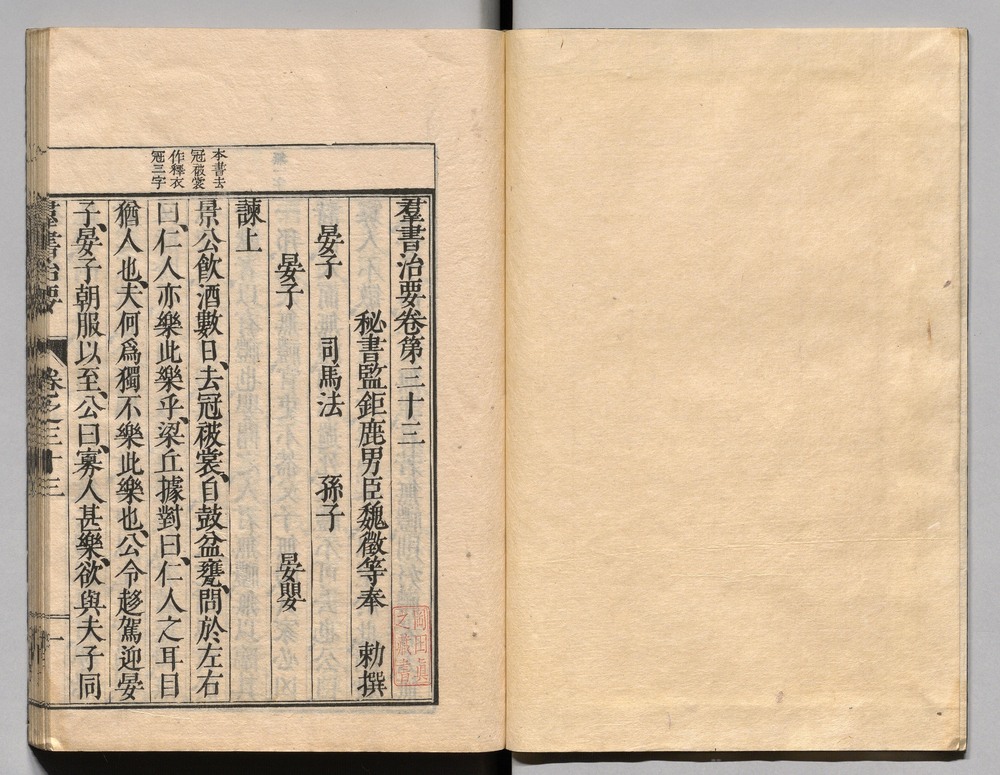 羣書治要卷第三十三
秘書監鉅鹿男臣魏徵等奉 勅撰
晏子 司馬法 孫子
晏子 晏嬰
諫上
景公飮酒數日、去冠被裳、自鼓盆甕、問於左右
曰、仁人亦樂此樂乎、梁丘據對曰、仁人之耳目
猶人也、夫何爲獨不樂此樂也、公令趍駕迎晏
子、晏子朝服以至、公曰、寡人甚樂、欲與夫子同
本書去
冠被裳
作釋衣
冠三字
羣書治要 卷之三十三 一
岡田眞
之藏書